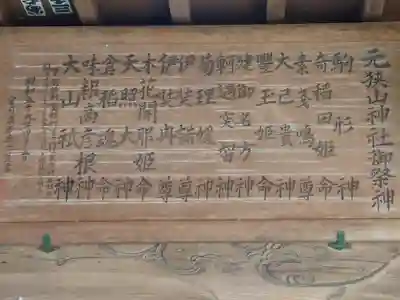 元狭山神社御祭神
駒形神
奇稲田姫命
素盞鳴尊
大己貴神
豊玉姫命
建御名方神
軻遇突智神
菊理姫神
伊弉諾尊
伊弉冉尊
木花開耶姫命
天照大神
倉稲魂命
味耜高彦根神
大山祇神